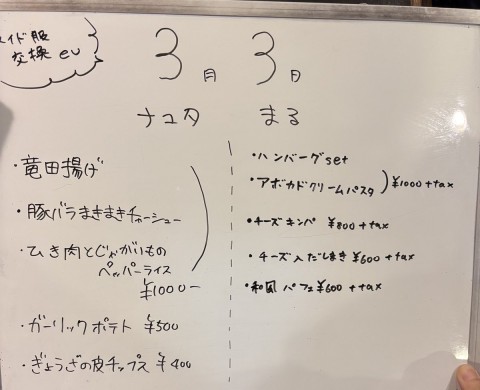 メイド服
交換 ev
3月3日
ナユタ
・竜田揚げ
・豚バラまきまきチャーシュー
・ひき肉とじゃがいもの
ペッパーライス
¥1000-
・ガーリックポテト ¥500
・ぎょうざの皮チップス ¥400
まる
・ハンバーグset
・アボカドクリームパスタ ¥1000+tax
・チーズキンパ ¥800+tax
・チーズ入だしまき ¥600+tax
・和風パフェ ¥600+tax